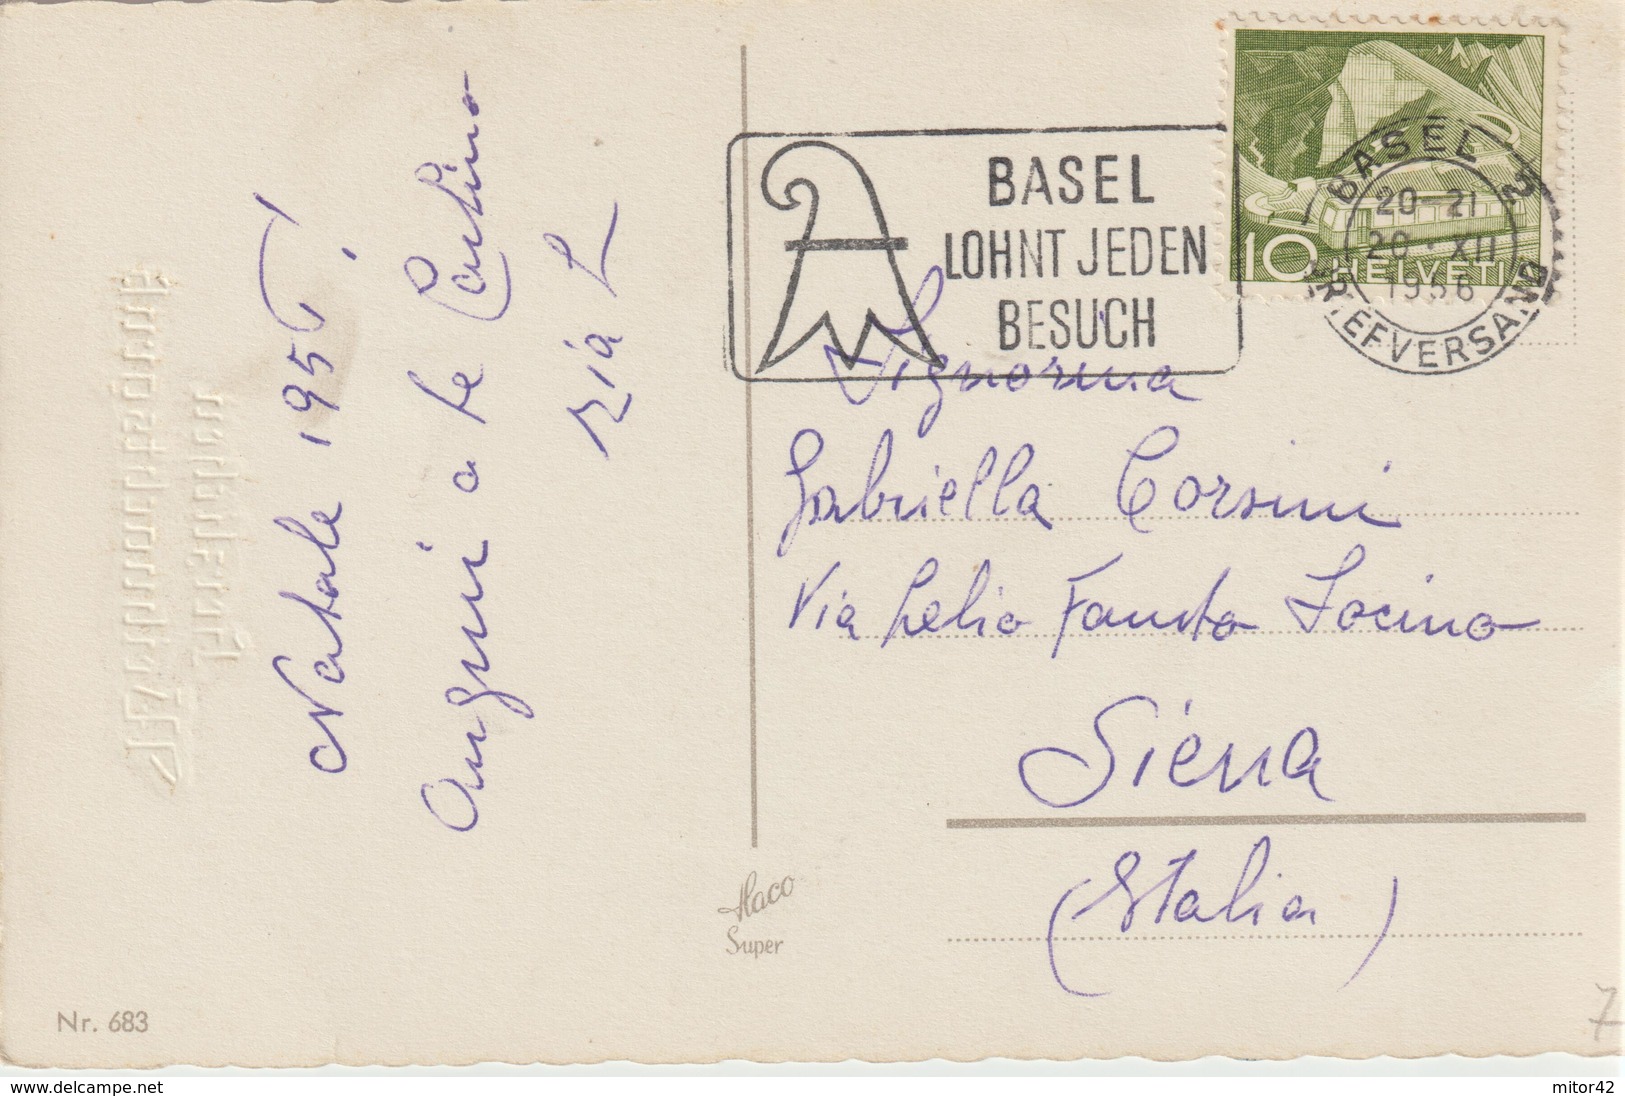 Natale 1956!
Auguri a te Carlino
zia L
BASEL
LOHNT JEDEN
BESUCH
10 HELVETIA
BASEL 2
20-21
20. XII
1956
BRIEFVERSAND
Signorina
Gabriella Corsini
Via Lelio Fausto Socino
Siena
(Italia)
Haco
Super
Nr. 683
7
www.delcampe.net
mitor42